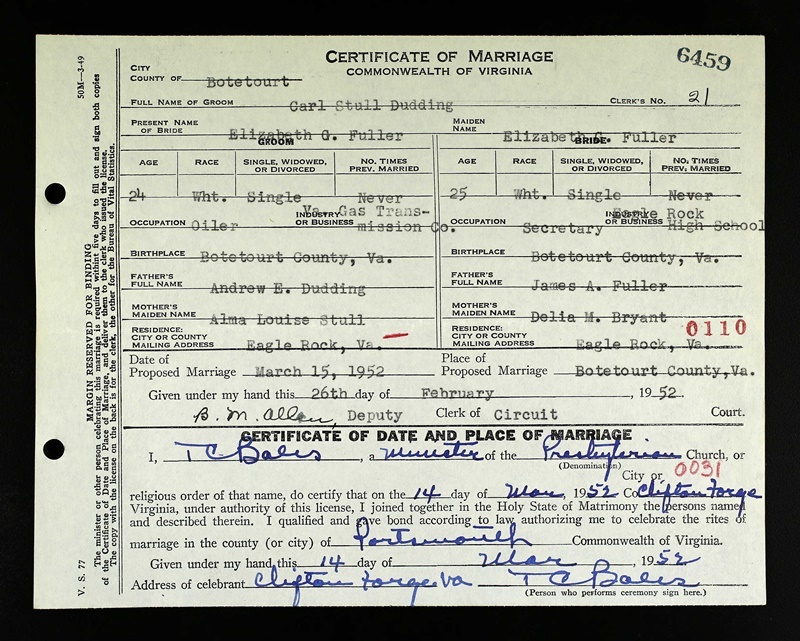 CERTIFICATE OF MARRIAGE
COMMONWEALTH OF VIRGINIA
6459
CITY
COUNTY OF Botetourt
FULL NAME OF GROOM Carl Stull Dudding CLERK'S NO. 21
PRESENT NAME OF BRIDE Elizabeth G. Fuller MAIDEN NAME Elizabeth G. Fuller
GROOM BRIDE
AGE RACE SINGLE, WIDOWED, OR DIVORCED NO. TIMES PREV. MARRIED AGE RACE SINGLE, WIDOWED, OR DIVORCED NO. TIMES PREV. MARRIED
24 Wht. Single Never 25 Wht. Single Never
OCCUPATION Oiler INDUSTRY OR BUSINESS Va. Gas Transmission Co. OCCUPATION Secretary INDUSTRY OR BUSINESS Eagle Rock High School
BIRTHPLACE Botetourt County, Va. BIRTHPLACE Botetourt County, Va.
FATHER'S FULL NAME Andrew E. Dudding FATHER'S FULL NAME James A. Fuller
MOTHER'S MAIDEN NAME Alma Louise Stull MOTHER'S MAIDEN NAME Delia M. Bryant
0110
RESIDENCE: CITY OR COUNTY MAILING ADDRESS Eagle Rock, Va. RESIDENCE: CITY OR COUNTY MAILING ADDRESS Eagle Rock, Va.
Date of Proposed Marriage March 15, 1952 Place of Proposed Marriage Botetourt County, Va.
Given under my hand this 26th day of February, 1952.
B. M. Allen, Deputy Clerk of Circuit Court.
CERTIFICATE OF DATE AND PLACE OF MARRIAGE
I, T C Bales, a Minister of the Presbyterian Church, or
(Denomination)
City or 0031
religious order of that name, do certify that on the 14 day of Mar, 1952 Co Clifton Forge
Virginia, under authority of this license, I joined together in the Holy State of Matrimony the persons named
and described therein. I qualified and gave bond according to law authorizing me to celebrate the rites of
marriage in the county (or city) of Portsmouth Commonwealth of Virginia.
Given under my hand this 14 day of Mar, 1952
Address of celebrant Clifton Forge Va T C Bales
(Person who performs ceremony sign here.)
V. S. 77 50M—3-49
MARGIN RESERVED FOR BINDING
The minister or other person celebrating this marriage is required within five days to fill out and sign both copies
of the Certificate of Date and Place of Marriage, and deliver them to the clerk who issued the license.
The copy with the license on the back is for the clerk, the other for the Bureau of Vital Statistics.